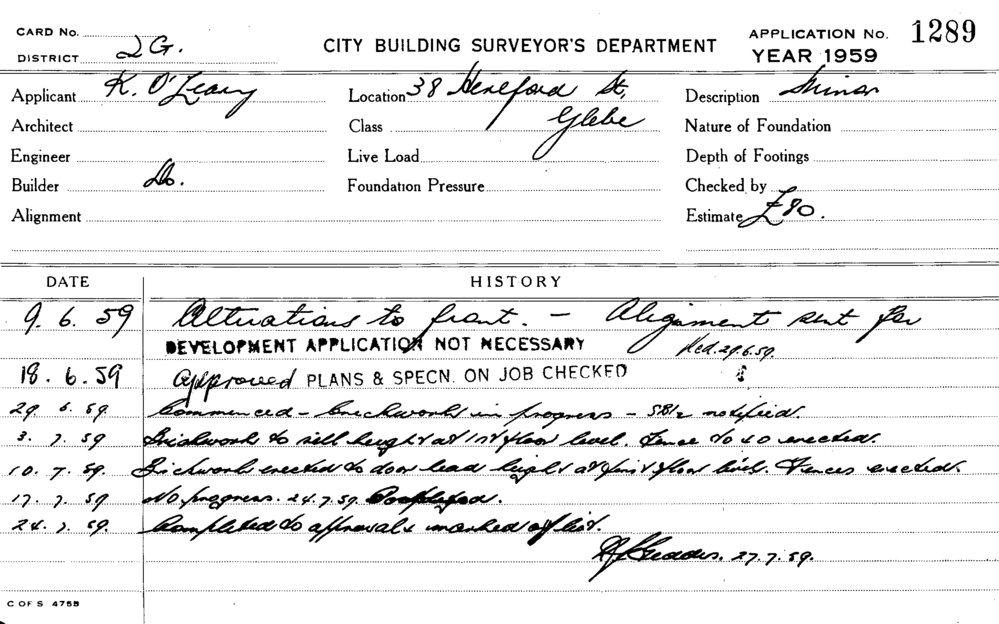 CARD No.
DISTRICT 2G.
CITY BUILDING SURVEYOR'S DEPARTMENT
APPLICATION No. 1289
YEAR 1959
Applicant K. O'Leary
Location 38 Hereford St,
Description Minor
Architect
Class Glebe
Nature of Foundation
Engineer
Live Load
Depth of Footings
Builder Do.
Foundation Pressure
Checked by
Alignment
Estimate £80.
DATE HISTORY
9. 6. 59 Alterations to front. – Alignment sent for
DEVELOPMENT APPLICATION NOT NECESSARY Red. 29.6.59.
18. 6. 59 Approved PLANS & SPECN. ON JOB CHECKED
29 6. 59. Commenced – brickwork in progress – notified.
3. 7. 59 Brickwork to sill height at 1st floor level. Fence to erected.
10. 7. 59. Brickwork erected to door head height at first floor level. Fences erected.
17. 7. 59 No progress. 24.7.59. Completed.
24. 7. 59. Completed to approval & marked off list.
27.7.59.
C OF S 4755